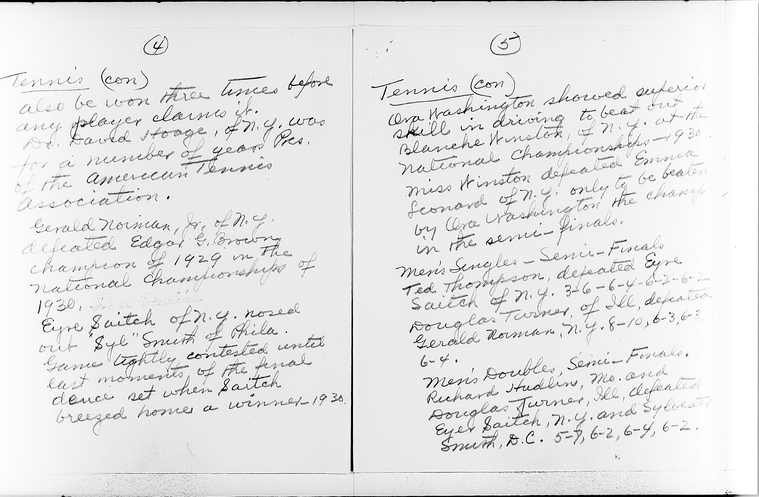 4
Tennis (con)
also be won three times before
any player claims it.
Dr. David Hoage, of N.Y. was
for a number of years Pres.
of the American Tennis
Association.
Gerald Norman, Jr. of N.Y.
defeated Edgar G. Brown
champion of 1929 in the
National Championships of
1930.
Eyre Saitch of N.Y. nosed
out "Syl" Smith of Phila.
Game tightly contested until
last moments of the final
deuce set when Saitch
breezed home a winner-1930.
5
Tennis (con)
Ora Washington showed superior
skill in driving to beat out
Blanche Winston, of N.Y. at the
National Championships-1930
Miss Winston defeated Emma
Leonard of N.Y. only to be beaten
by Ora Washington the champ
in the semi-finals.
Men's Singles - Semi-Finals
Ted Thompson, defeated Eyre
Saitch of N.Y. 3-6-6-4-6-2-6-2
Douglas Turner, of Ill, defeated
Gerald Norman, N.Y. 8-10, 6-3, 6-3,
6-4.
Men's Doubles, Semi-Finals.
Richard Hudlin, Mo. and
Douglas Turner, Ill, defeated
Eyer Saitch, N.Y. and Sylvester
Smith, D.C. 5-7, 6-2, 6-4, 6-2.